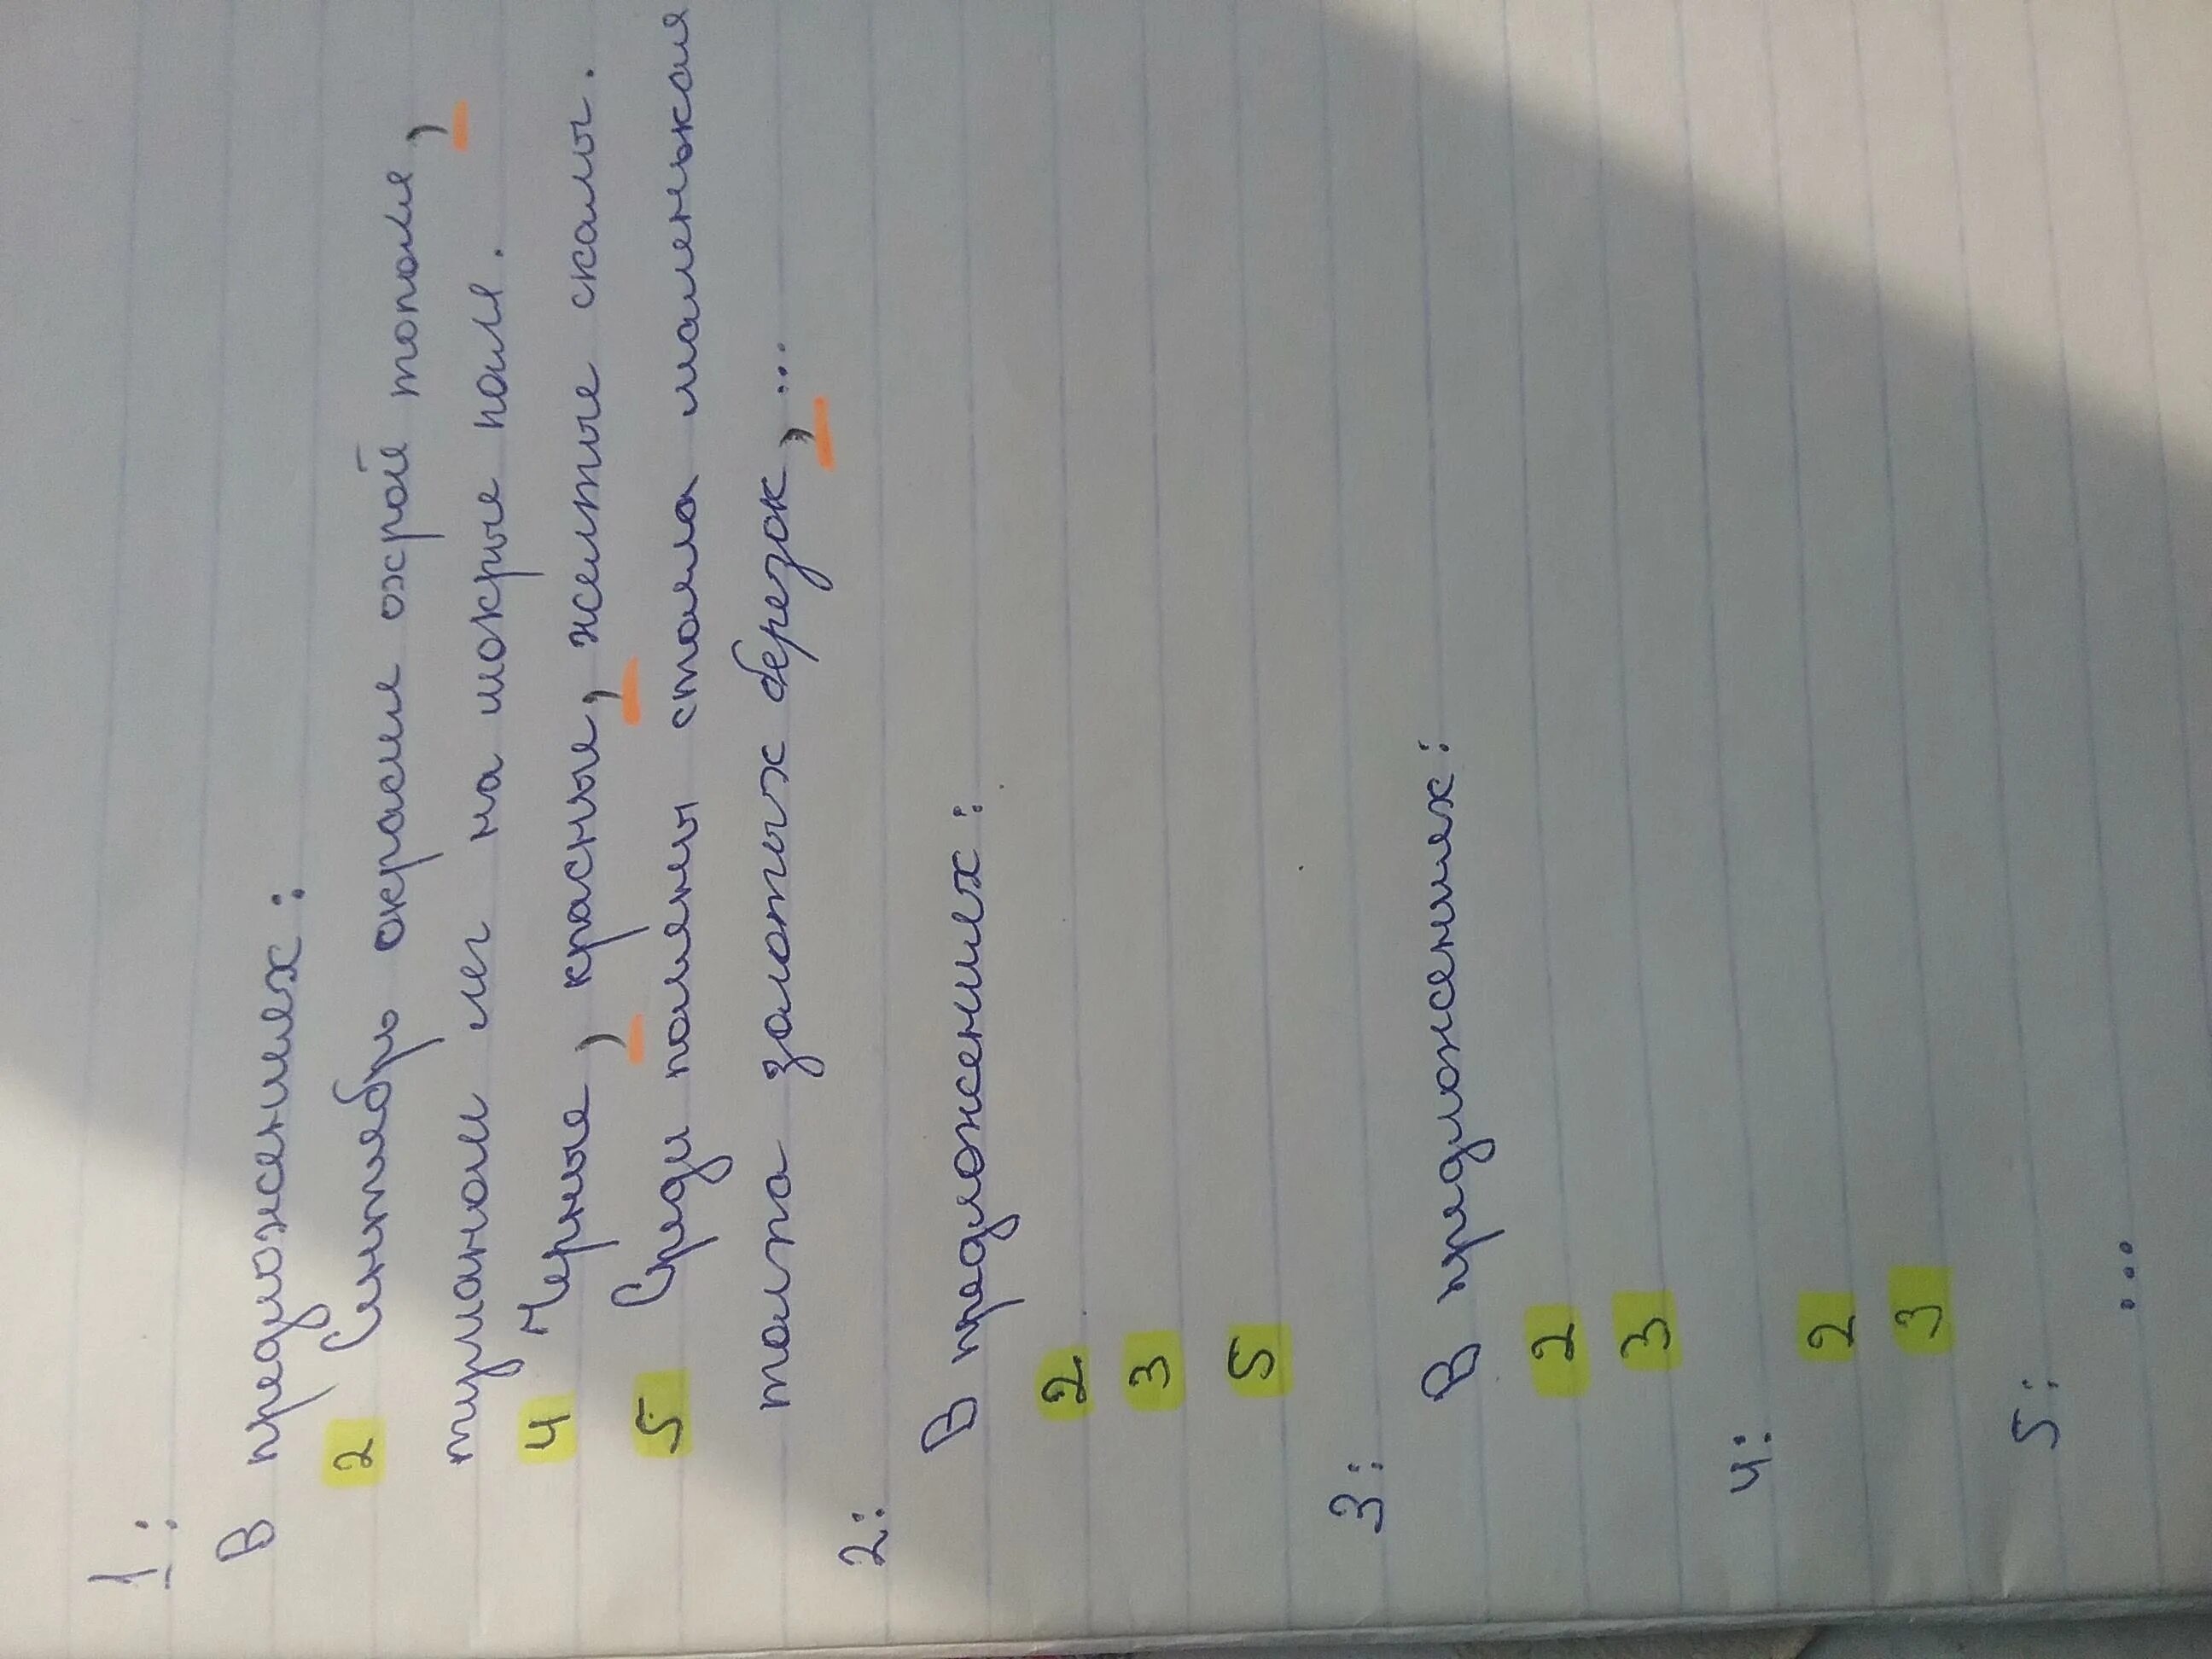 1:
В предложениях:
2 Сентябрь окрасил охрой тополя,
туманом лег на мокрые поля.
4 Черные, красные, желтые скалы.
5 Среди поляны стала маленькая
толпа золотых березок,...
2:
В предложениях:
2
3
5
3:
В предложениях:
2
3
4:
2
3
5:
...